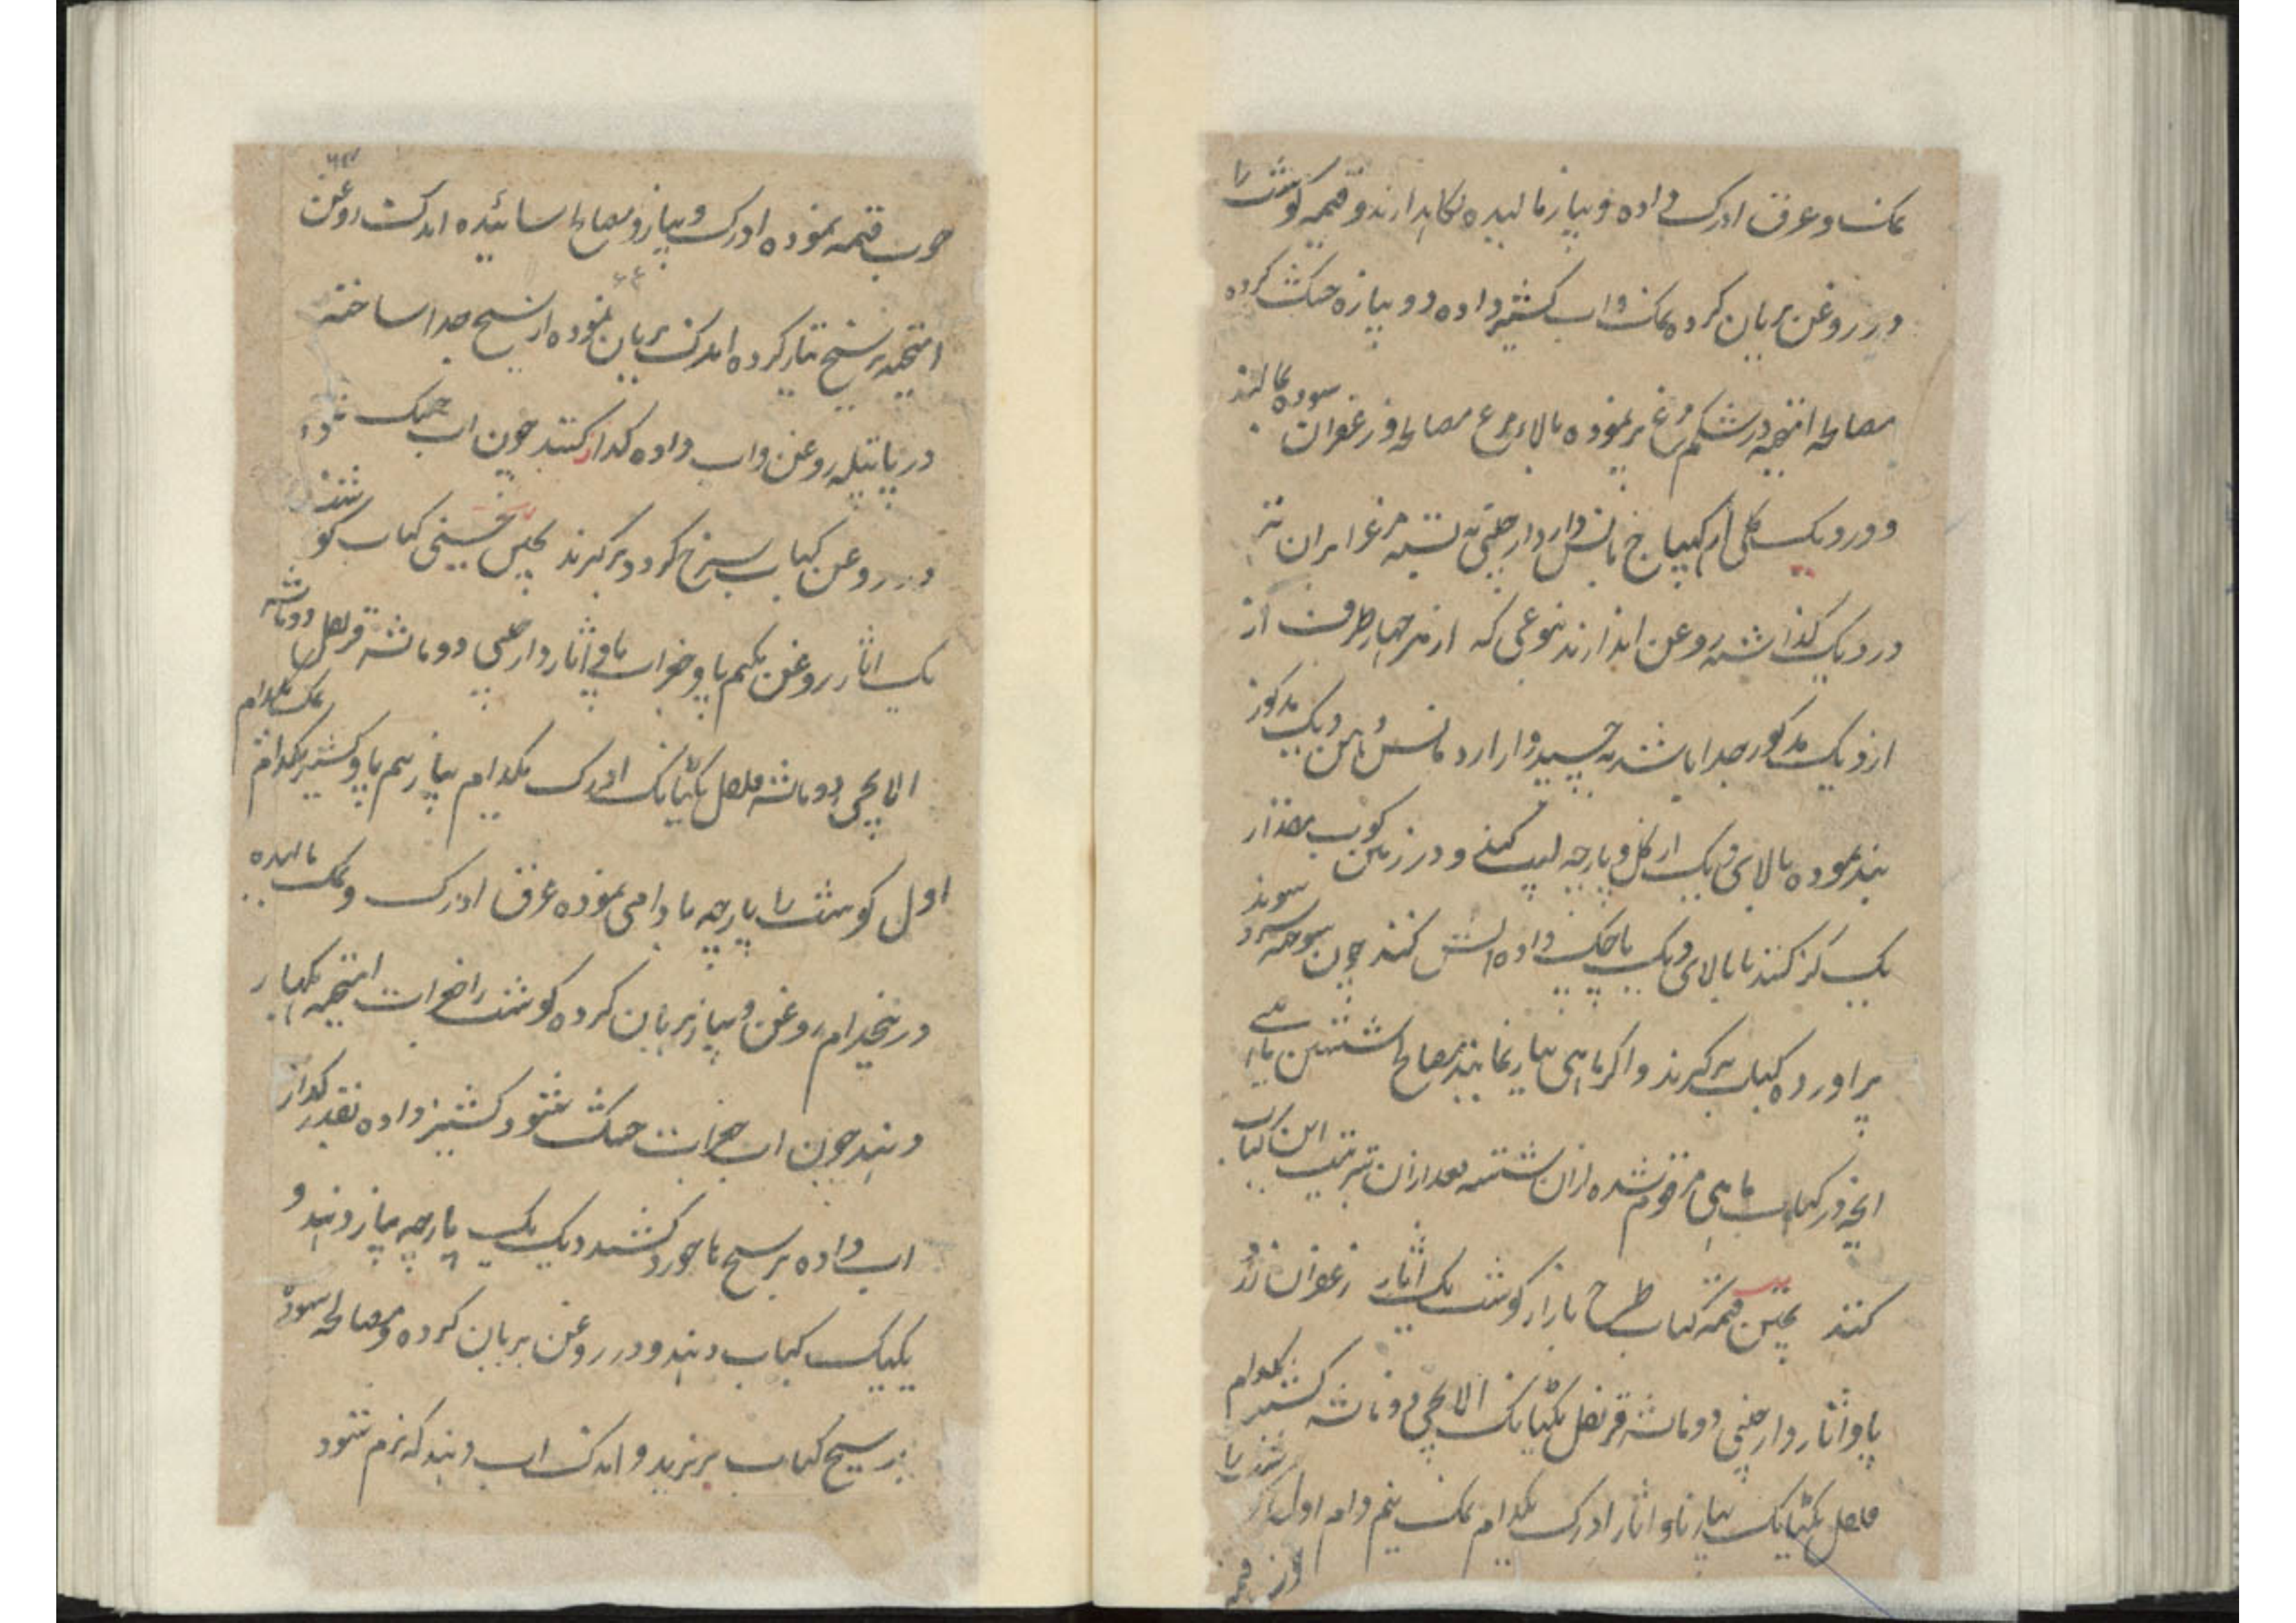 نمک و عرق ادرک داده و پیاز مالیده نکاهدارند و قیمه کوشت را
در روغن بریان کرده نمک و اب کشنیز داده دو پیازه خشک کرده
مصالحه انیچه در شکم مرغ پر نموده بالای مرغ مصالحه و زعفران سوده بمالند
و در دیک کلی
در دیک کذاشته روغن اندازند بنوعی که از هر چهار طرف از
از دیک مذکور جدا باشد نه چسپد و از ارد ماش دهن دیک مذکور
بند نموده بالای دیک از کل و پارچه لیپ کنند و در زمین کوب مقدار
یک کز کنند تا بالای دیک پاچک داده اتش کنند چون سوخته سرد شوند
بر اورده کباب برکیرند و اکر ماهی تیار نمایند مصالح شستن ماهی
انچه در کباب ماهی مرقوم شده ازان شسته بعد ازان بترتیب این کباب
کنند پختن قیمه کباب طرح بازار کوشت یک اثار زعفران زرد
پاو اثار دارچینی دو ماشه قرنفل یکتانک الاچی دو ماشه کشنیز یکدام
فلفل یکتانک پیاز پاو اثار ادرک یکدام نمک نیم دام اول کوشت را
قیمه
خوب قیمه نموده ادرک و پیاز و مصالح سائیده اندک روغن
امیخته بر سیخ تیار کرده اندک بریان نموده از سیخ جدا ساخته
در پاتیله روغن و اب داده کداز کنند چون اب خشک شود
در روغن کباب سرخ کردد برکیرند پختن حسینی کباب کوشت
یک اثار روغن نیم پاو جغرات پاو اثار دارچینی دو ماشه قرنفل دو ماشه
الاچی دو ماشه فلفل یکتانک ادرک یکدام پیاز نیم پاو کشنیز یکدام نمک یکدام
اول کوشت را پارچه بادامی نموده عرق ادرک و نمک مالیده
در نیمدام روغن و پیاز بریان کرده کوشت را جغرات امیخته بکهار
دهند چون اب جغرات خشک شود کشنیز داده بقدر کداز
اب داده بر سیخ ماخورد کشند و یک یک پارچه پیاز دهند و
یکیک کباب دهند و در روغن بریان کرده و مصالحه سوده
بر سیخ کباب بریزید و اندک اب دهند که نرم شود